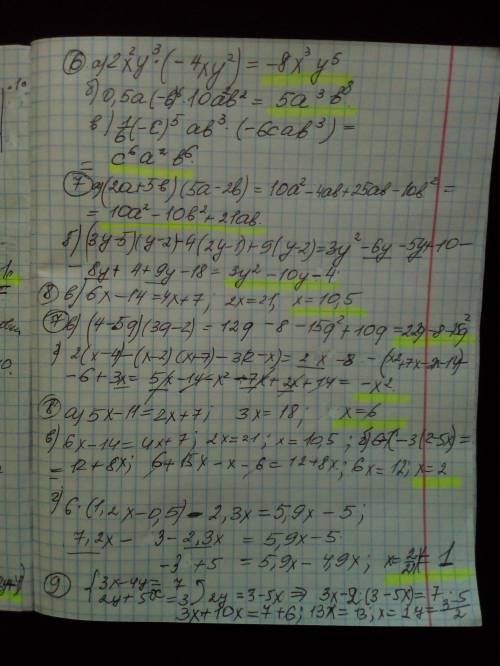 ⑥ а) 2x²y³·(-4xy²) = -8x³y⁵
б) 0,5a(-b)⁶·10a²b² = 5a³b⁸
в) 1/6(-c)⁵ab³·(-6cab³) =
= c⁶a²b⁶
⑦ а) (2a+5b)(5a-2b) = 10a²-4ab+25ab-10b² =
= 10a²-10b²+21ab.
б) (3y-5)(y-2)-4(2y-1)+9(y-2)=3y²-6y-5y+10-
-8y+4+9y-18=3y²-10y-4
⑧ в) 6x-14=4x+7; 2x=21, x=10,5
⑦ в) (4-5g)(3g-2)=12g-8-15g²+10g=22g-8-15g²
г) 2(x-4)-(x-2)(x+7)-3(2-x)=2x-8-(x²+7x-2x-14)-
-6+3x=5x-14-x²-7x+2x+14=-x²
⑧ а) 5x-11=2x+7; 3x=18; x=6
в) 6x-14=4x+7; 2x=21; x=10,5; б) -3(2-5x)=
=12+8x; 6+15x-x-6=12+8x; 6x=12; x=2
г) 6·(1,2x-0,5)-2,3x=5,9x-5;
7,2x-3-2,3x=5,9x-5
-3+5=5,9x-4,9x; 1
⑨ {3x-4y=7
2y+5x=3} 2y=3-5x ⇒ 3x-2·(3-5x)=7;
3x+10x=7+6; 13x=13; x=1 y=